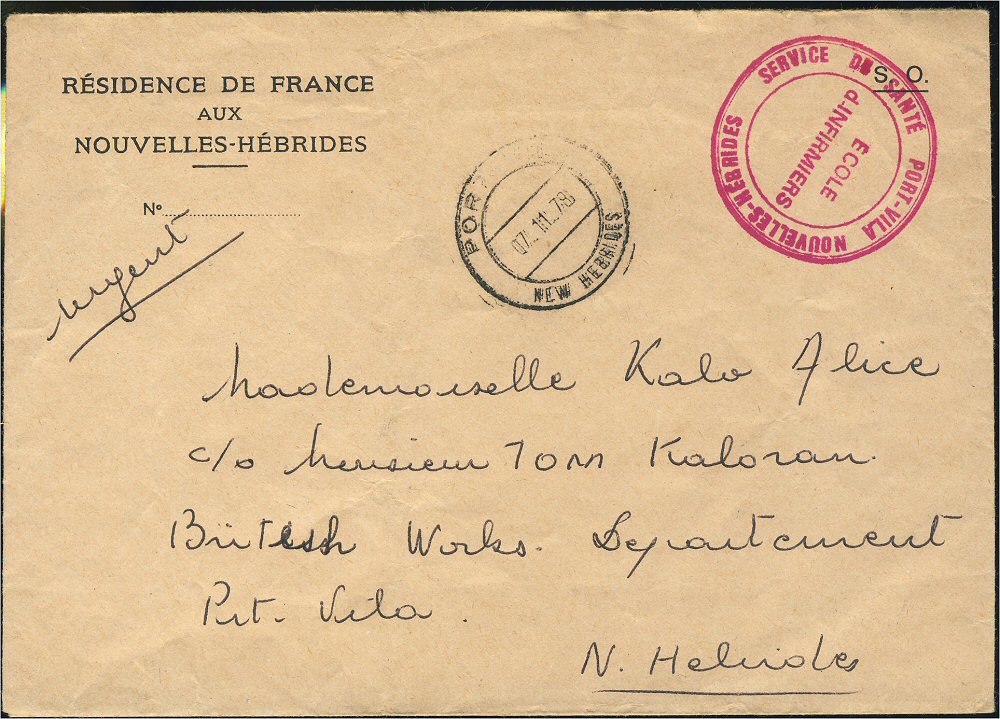 RÉSIDENCE DE FRANCE
AUX
NOUVELLES-HÉBRIDES
N°
urgent
PORT
07.11.78
NEW HEBRIDES
S. O.
SERVICE DE SANTÉ PORT-VILA NOUVELLES-HÉBRIDES
ECOLE
d'INFIRMIERS
Mademoiselle Kalo Alice
c/o Monsieur Tom Kaloran.
British Works. Departement
Prt. Vila.
N. Hebrides